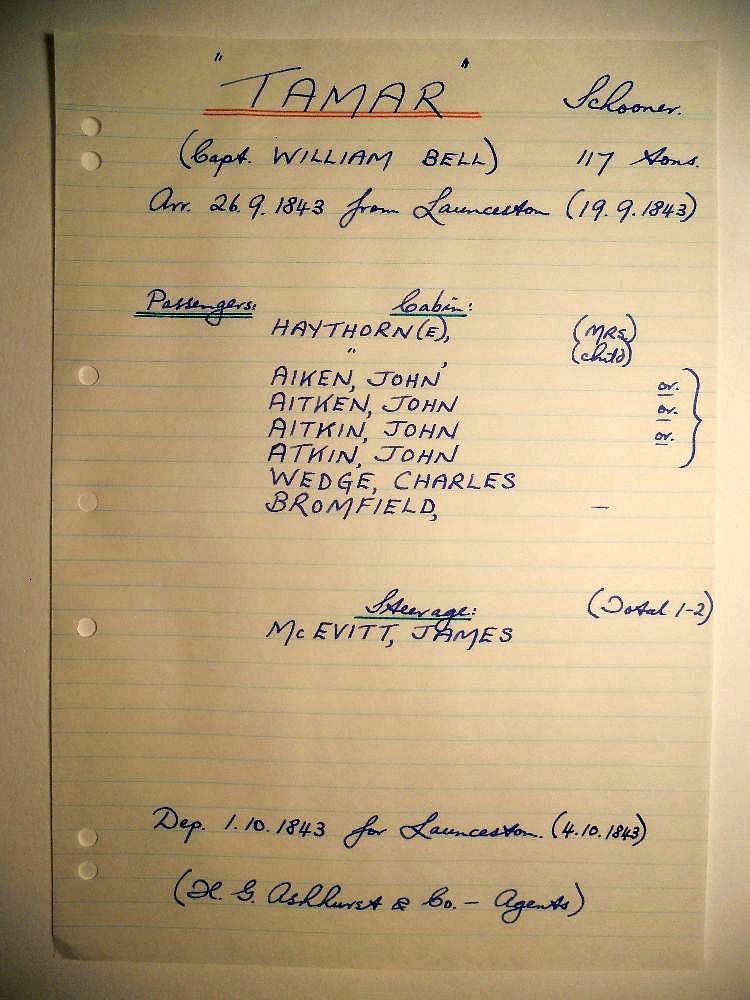 "TAMAR" Schooner.
(Capt. WILLIAM BELL) 117 tons.
Arr. 26.9.1843 from Launceston (19.9.1843)
Passengers: Cabin:
HAYTHORN(E), (MRS.)
" , (child)
AIKEN, JOHN or.
AITKEN, JOHN or.
AITKIN, JOHN or.
ATKIN, JOHN
WEDGE, CHARLES
BROMFIELD, —
Steerage: (Total 1-2)
McEVITT, JAMES
Dep. 1.10.1843 for Launceston. (4.10.1843)
(H. G. Ashhurst & Co. — Agents)